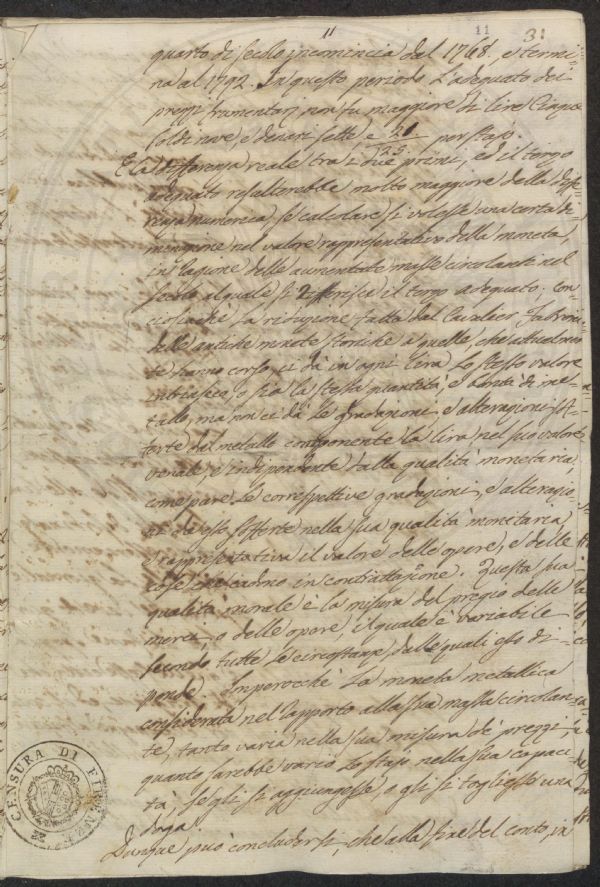 11 11 31
quarto di secolo incomincia dal 1768, e termi=
na al 1792. In questo periodo l'adequato dei
prezzi frumentarj non fu maggiore di lire Cinque
soldi nove, e denari sette, e 21/25 per stajo.
E la differenza reale tra i due primi, ed il terzo
adequato resulterebbe molto maggiore della diffe=
renza numerica, se calcolare si volesse una certa di=
minuzione nel valore rappresentativo della moneta,
in ragione delle aumentate masse circolanti nel
secolo al quale si riferisce il terzo adequato; con=
ciosiachè la riduzione fatta dal Cavalier Fabroni
delle antiche monete storiche a quelle, che attualmen=
te hanno corso, ci dà in ogni lira lo stesso valore
intrinseco, o sia la stessa quantità, e bontà di me=
tallo, ma non ci dà le gradazioni, e alterazioni sof=
ferte dal metallo componente la lira nel suo valore
venale, e indipendente dalla qualità monetaria,
come pure le correspettive gradazioni, e alterazio=
ni da esso sofferte nella sua qualità monetaria,
e rappresentativa il valore delle opere, e delle
cose che cadono in contrattazione. Questa sua
qualità morale è la misura del pregio delle
merci, o delle opere, il quale è variabile
secondo tutte le circostanze, dalle quali esso di=
pende. Imperocchè la moneta metallica
considerata nel rapporto alla sua massa circolan=
te, tanto varia nella sua misura de' prezzi,
quanto sarebbe vario lo stajo nella sua capaci=
tà, se gli si aggiungesse, o gli si togliesse una
doga.
Dunque può concludersi, che alla fine del conto, in
CENSURA DI FIRENZE